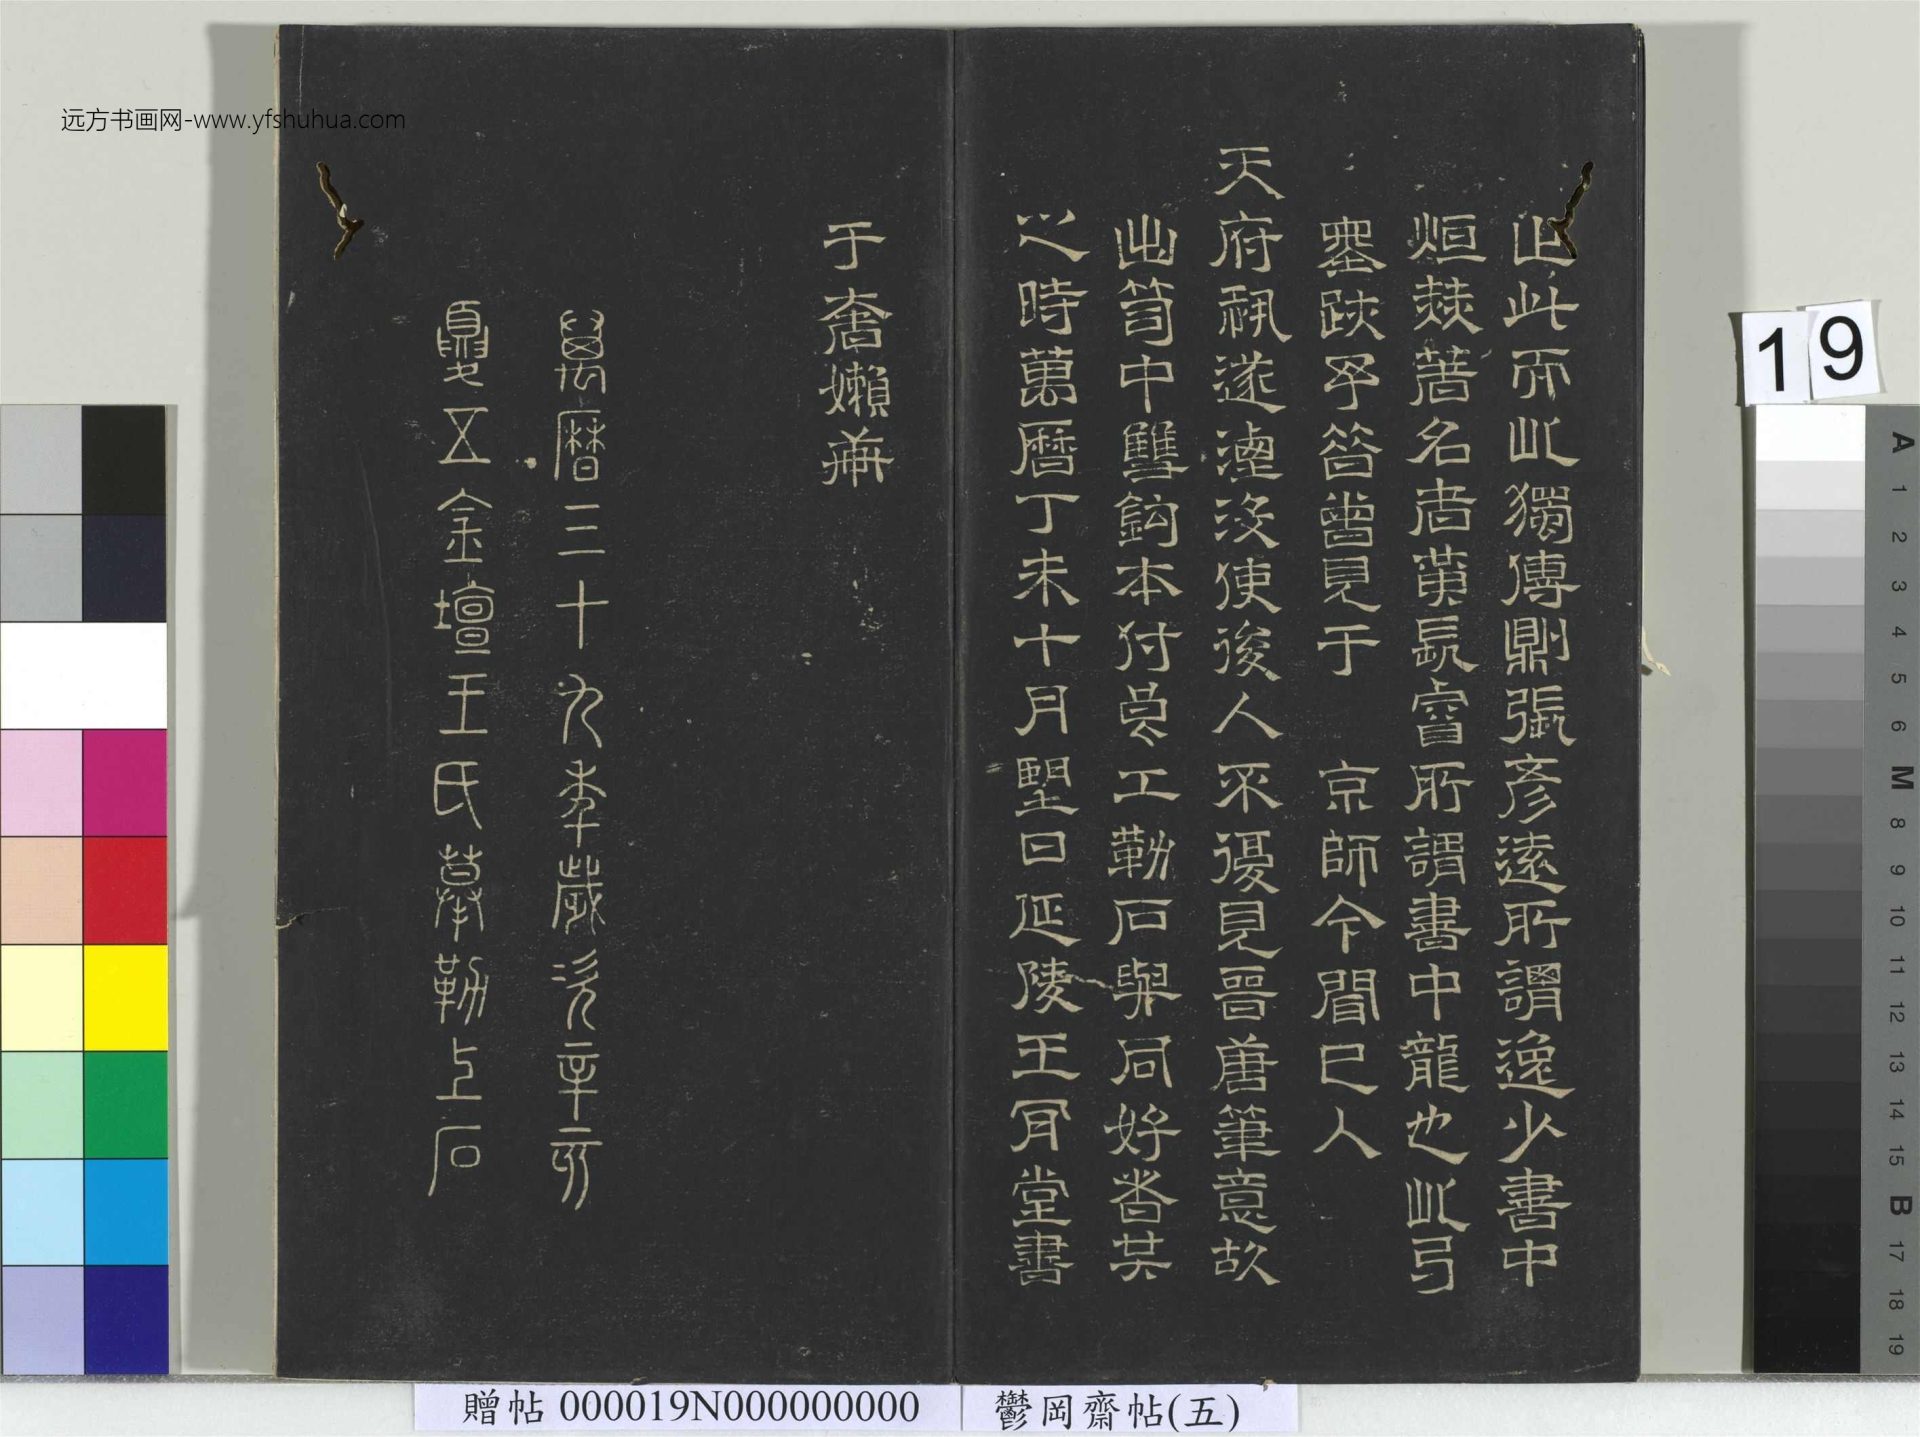 止此而此獨傳鼎張彥遠所謂逸少書中
烜赫著名者黃長睿所謂書中龍也此弓
璽跋予昔曾見于 京師今聞已人
天府祕遂湮沒使後人不復見晉唐筆意故
出笥中雙鉤本付良工勒石與同好者共
之時萬曆丁未十月望日延陵王肎堂書
于奢嬾菴
萬曆三十九年歲次辛亥
夏五金壇王氏摹勒上石
远方书画网-www.yfshuhua.com
19
A
1
2
3
4
5
6
M
8
9
10
11
12
13
14
15
B
17
18
19
贈帖 000019N000000000
鬱岡齋帖(五)